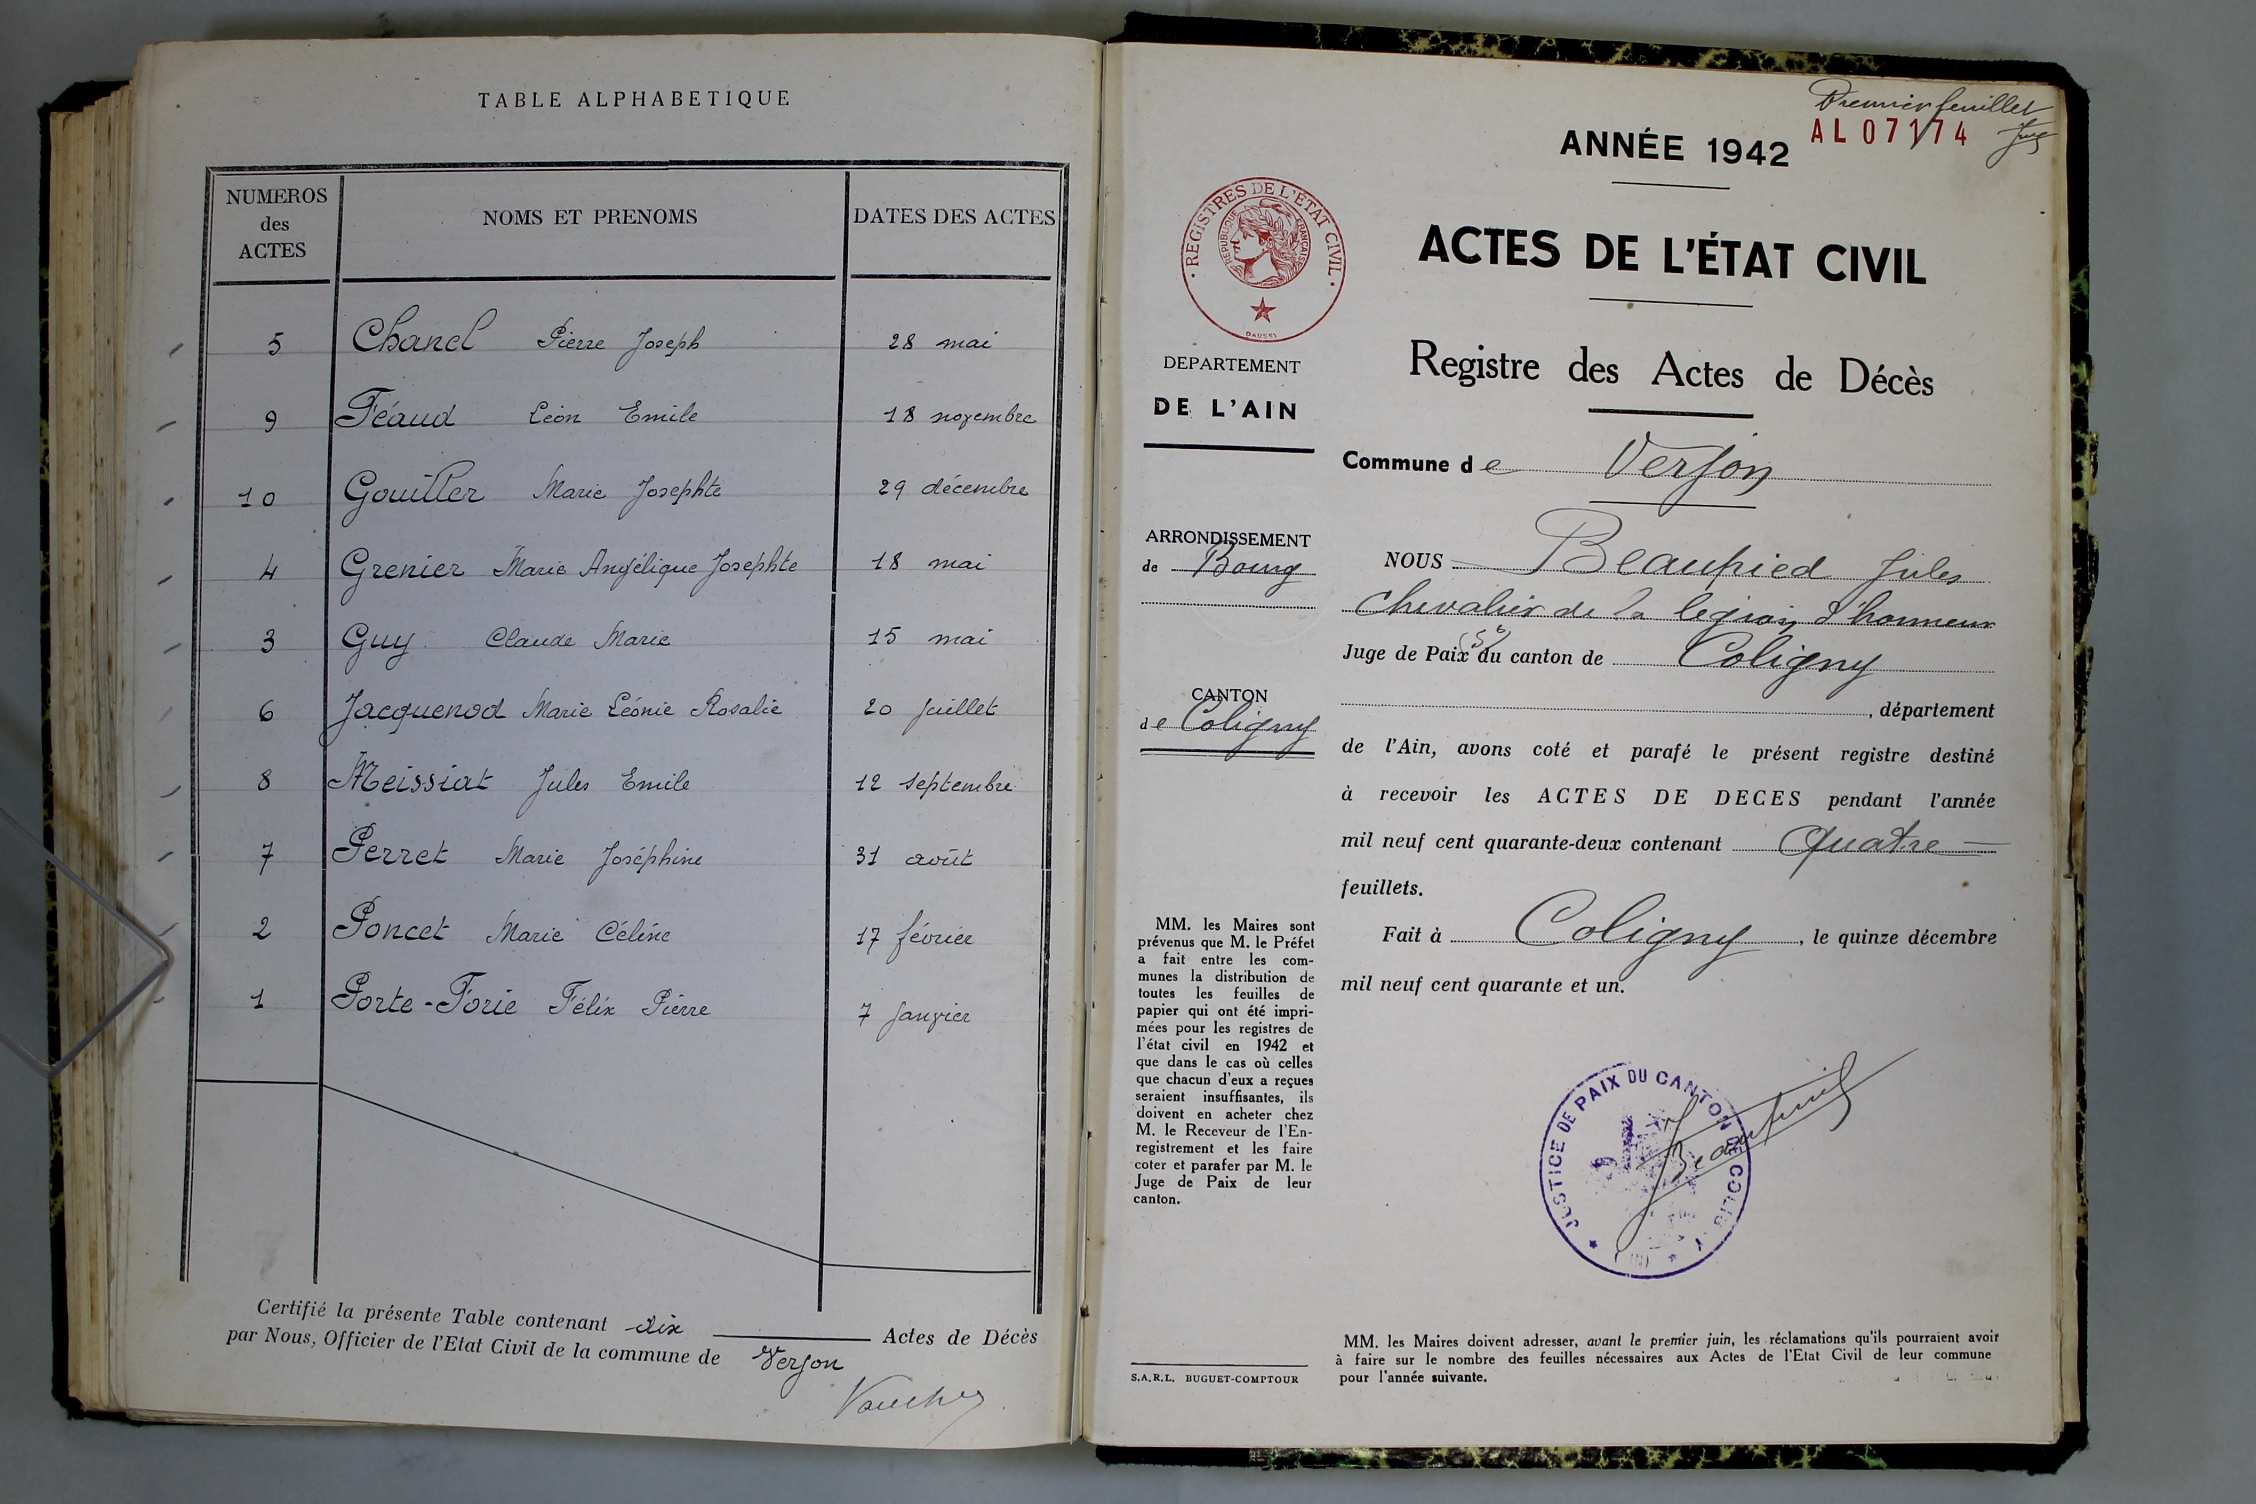 TABLE ALPHABETIQUE
NUMEROS
des
ACTES
NOMS ET PRENOMS
DATES DES ACTES
5 Chanel Pierre Joseph 28 mai
9 Féaud Léon Emile 18 novembre
10 Gouiller Marie Josephte 29 décembre
4 Grenier Marie Angélique Josephte 18 mai
3 Guy Claude Marie 15 mai
6 Jacquenod Marie Léonie Rosalie 20 juillet
8 Meissiat Jules Emile 12 septembre
7 Perret Marie Joséphine 31 août
2 Poncet Marie Céline 17 février
1 Porte-Forie Félix Pierre 7 janvier
Certifié la présente Table contenant dix Actes de Décès
par Nous, Officier de l'Etat Civil de la commune de Verjon
Premier feuillet
AL 07174
ANNÉE 1942
REGISTRES DE L'ÉTAT CIVIL
REPUBLIQUE FRANÇAISE
DAUSSY
ACTES DE L'ÉTAT CIVIL
Registre des Actes de Décès
DEPARTEMENT
DE L'AIN
ARRONDISSEMENT
de Bourg
CANTON
de Coligny
MM. les Maires sont
prévenus que M. le Préfet
a fait entre les com-
munes la distribution de
toutes les feuilles de
papier qui ont été impri-
mées pour les registres de
l'état civil en 1942 et
que dans le cas où celles
que chacun d'eux a reçues
seraient insuffisantes, ils
doivent en acheter chez
M. le Receveur de l'En-
registrement et les faire
coter et parafer par M. le
Juge de Paix de leur
canton.
S.A.R.L. BUGUET-COMPTOUR
Commune de Verjon
NOUS Beaupied Jules
Chevalier de la légion d'honneur
Juge de Paix du canton de Coligny
, département
de l'Ain, avons coté et parafé le présent registre destiné
à recevoir les ACTES DE DECES pendant l'année
mil neuf cent quarante-deux contenant quatre
feuillets.
Fait à Coligny, le quinze décembre
mil neuf cent quarante et un.
JUSTICE DE PAIX DU CANTON DE COLIGNY
Beaupied
MM. les Maires doivent adresser, avant le premier juin, les réclamations qu'ils pourraient avoir
à faire sur le nombre des feuilles nécessaires aux Actes de l'Etat Civil de leur commune
pour l'année suivante.